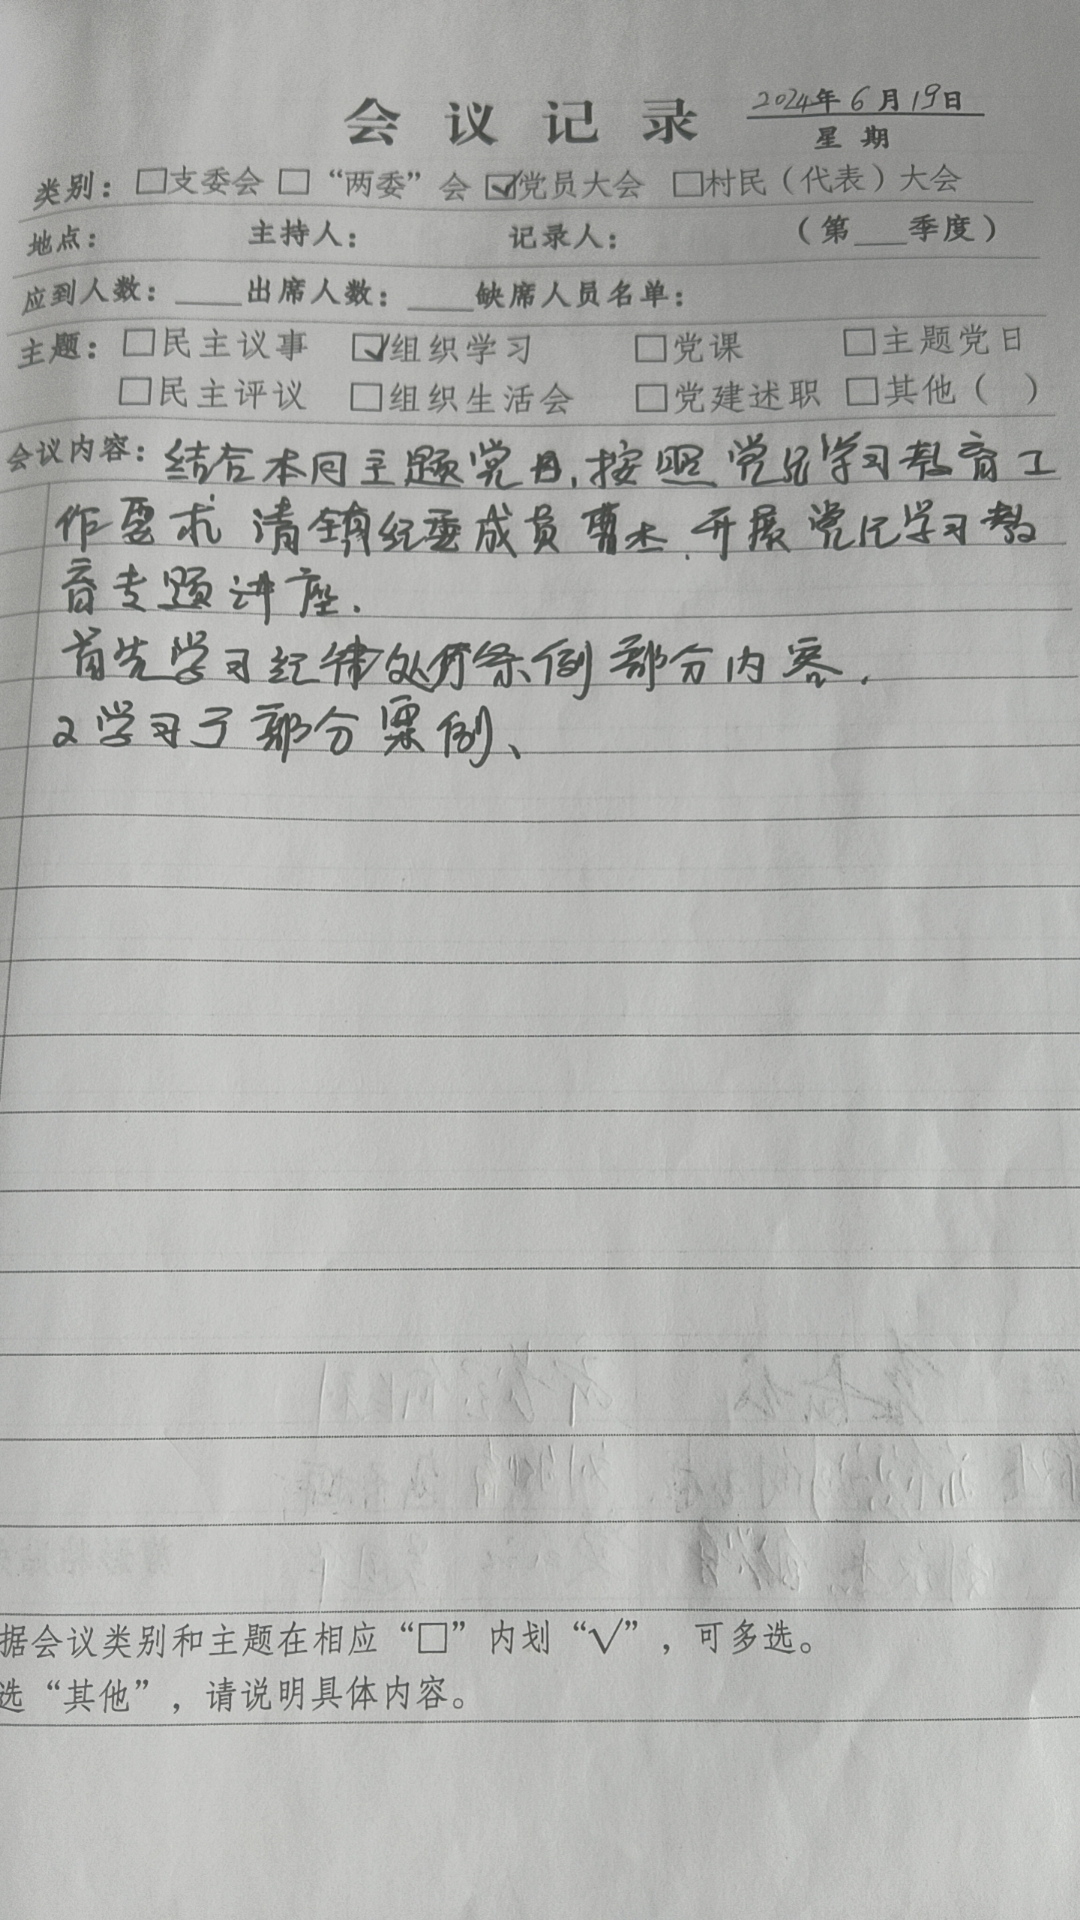 会议记录
2024年6月19日
星期
类别：□支委会 □“两委”会 ☑党员大会 □村民（代表）大会
地点： 主持人： 记录人： （第___季度）
应到人数：____出席人数：____缺席人员名单：
主题：□民主议事 ☑组织学习 □党课 □主题党日
□民主评议 □组织生活会 □党建述职 □其他（ ）
会议内容：结合本月主题党日，按照党纪学习教育工
作要求 请镇纪委成员曹杰.开展党纪学习教
育专题讲座.
首先学习纪律处分条例部分内容.
2学习了部分案例、
据会议类别和主题在相应“□”内划“√”，可多选。
选“其他”，请说明具体内容。